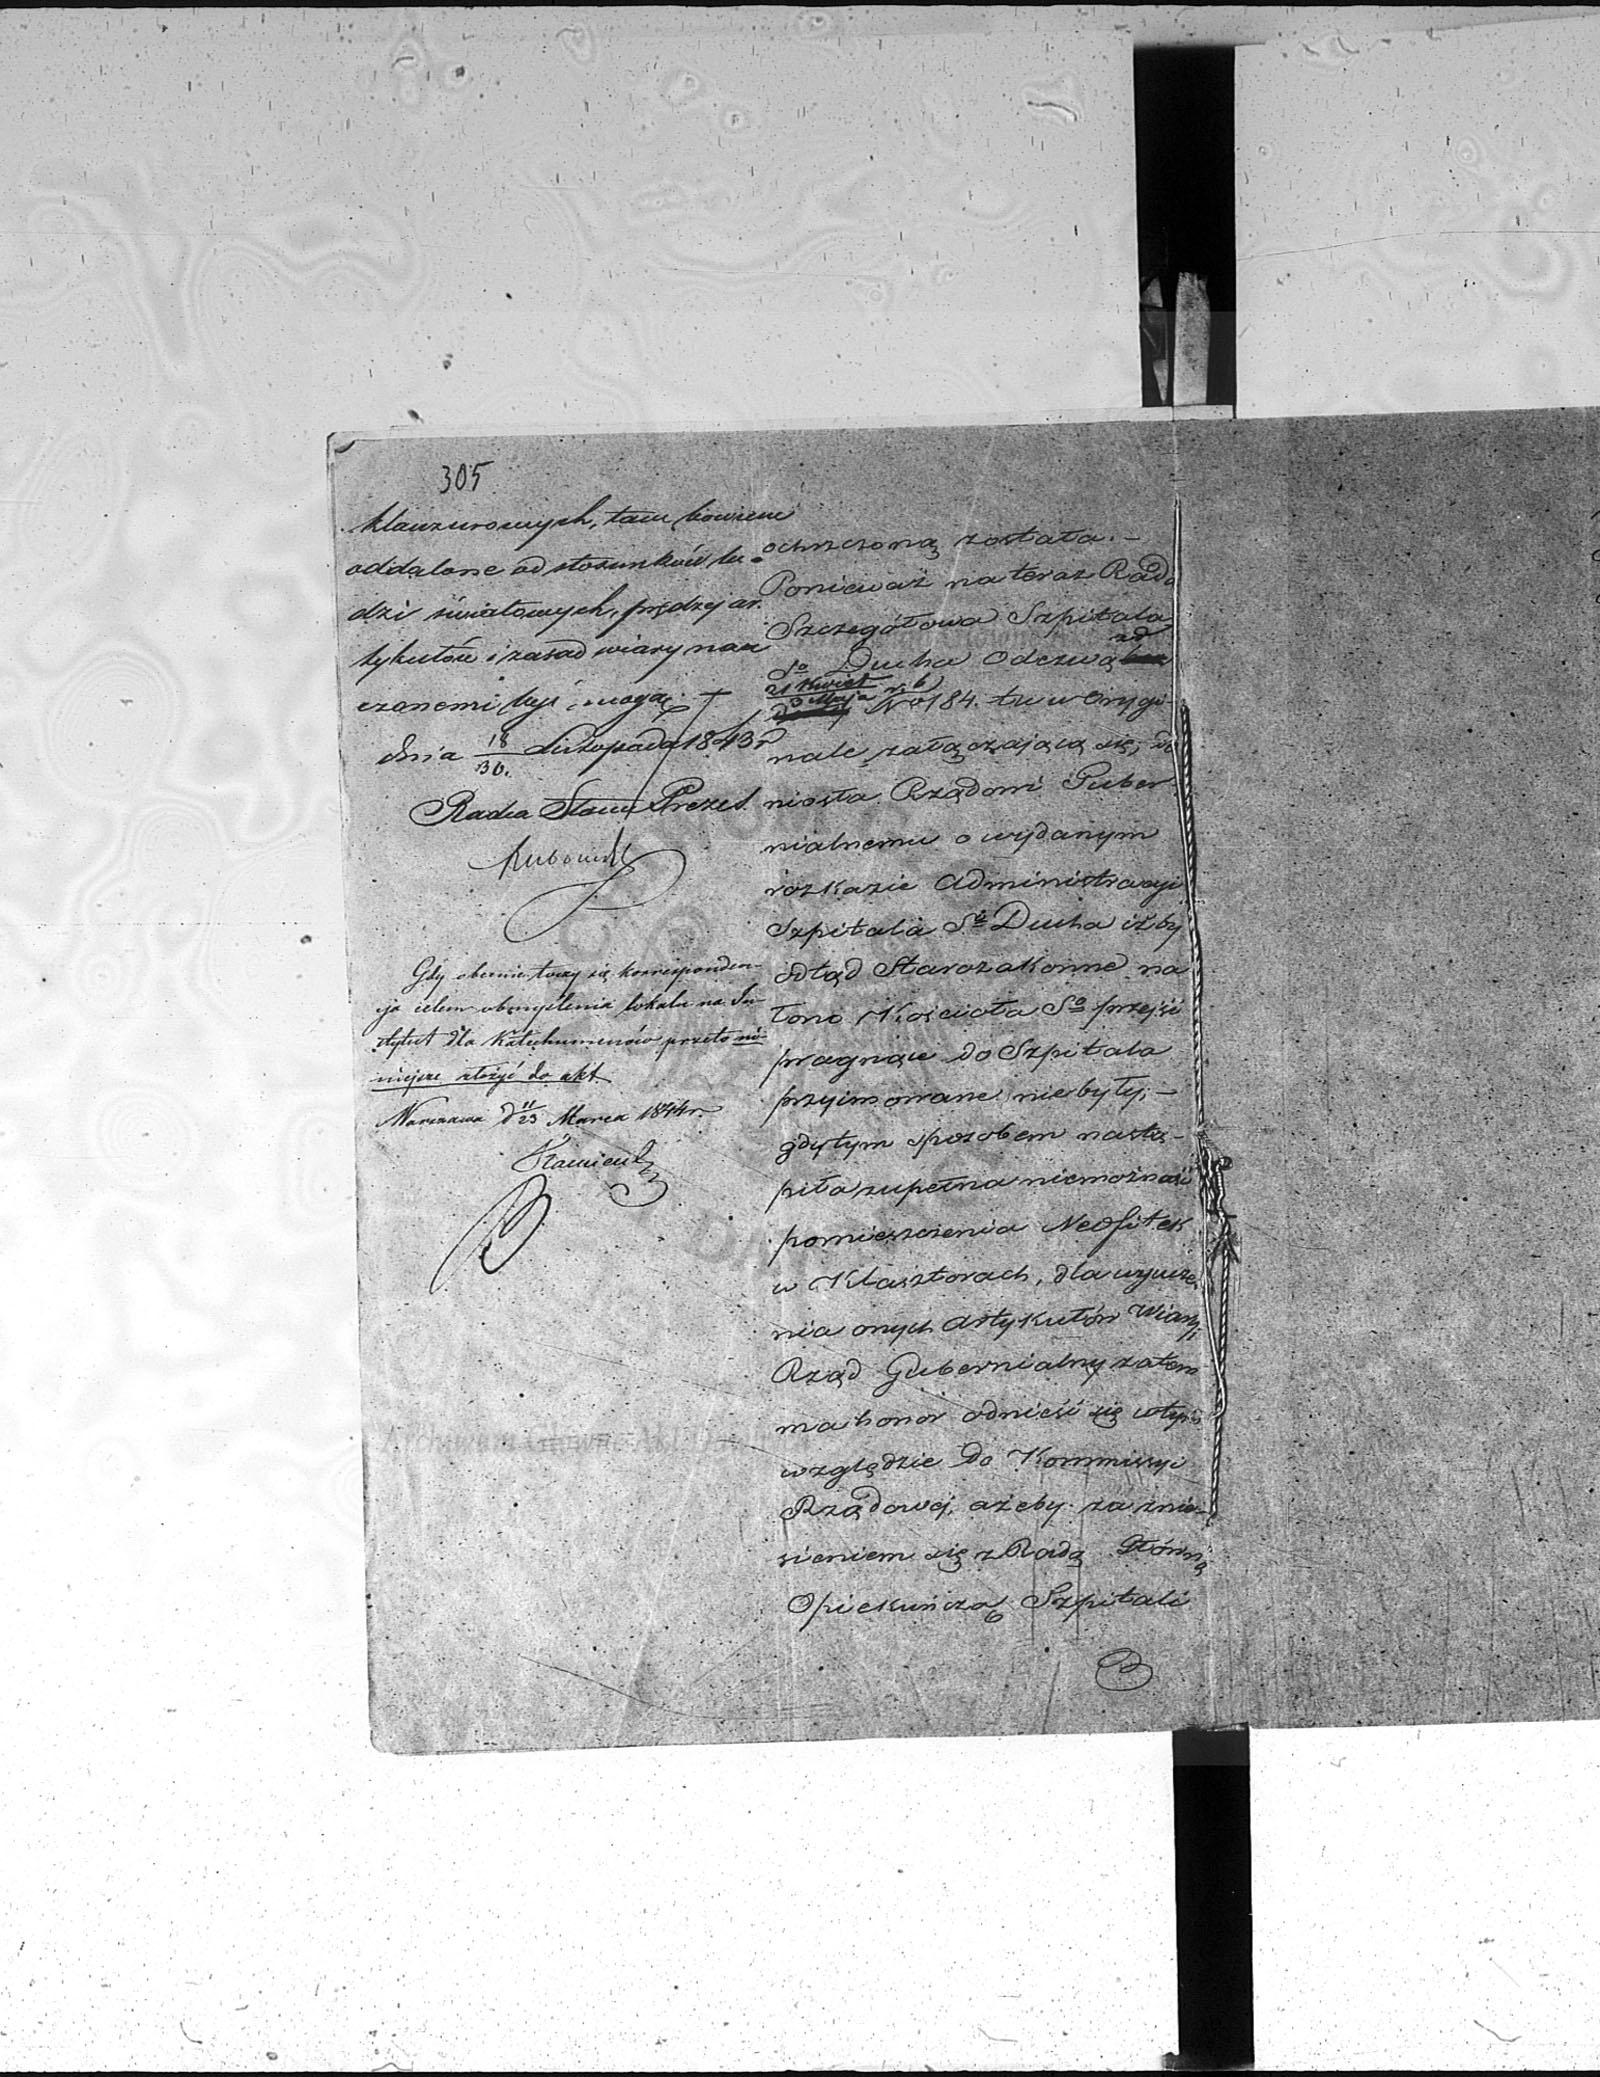 305
klauzurowych, tam bowiem
oddalone od stosunków lu-
dzi światowych, prędzej ar-
tykułów i zasad wiary nau
czonemi być mogą.
dnia 18/30. Listopada 1843 r
Radca Stanu Prezes
Gdy obecnie toczy się korresponden-
cya celem obmyślenia lokalu na In-
stytut dla Katechumenów przeto ni-
niejsze złożyć do akt.
Warszawa d 11/23 Marca 1844 r
ochrzczoną została. —
Ponieważ na teraz Rada
Szczegółowa Szpitala
Sgo Ducha Odezwą zd
21 Kwiet/3 Maja r. b No 184. tu w Orygi-
nale załączającą się, do
niosła Rządowi Guber-
nialnemu o wydanym
rozkazie Administracyi
Szpitala Sgo Ducha iżby
odtąd Starozakonne na
łono Kościoła So przejść
pragnące do Szpitala
przyimowane nie były; —
gdy tym sposobem nastą-
piła zupełna niemożność
pomieszczenia Neofitek
w Klasztorach, dla wyucze
nia onych Artykułów Wiary,
Rząd Gubernialny zatem
ma honor odnieść się w tym
względzie do Kommissyi
Rządowej, ażeby za znie-
sieniem się z Radą Główną
Opiekuńczą Szpitali